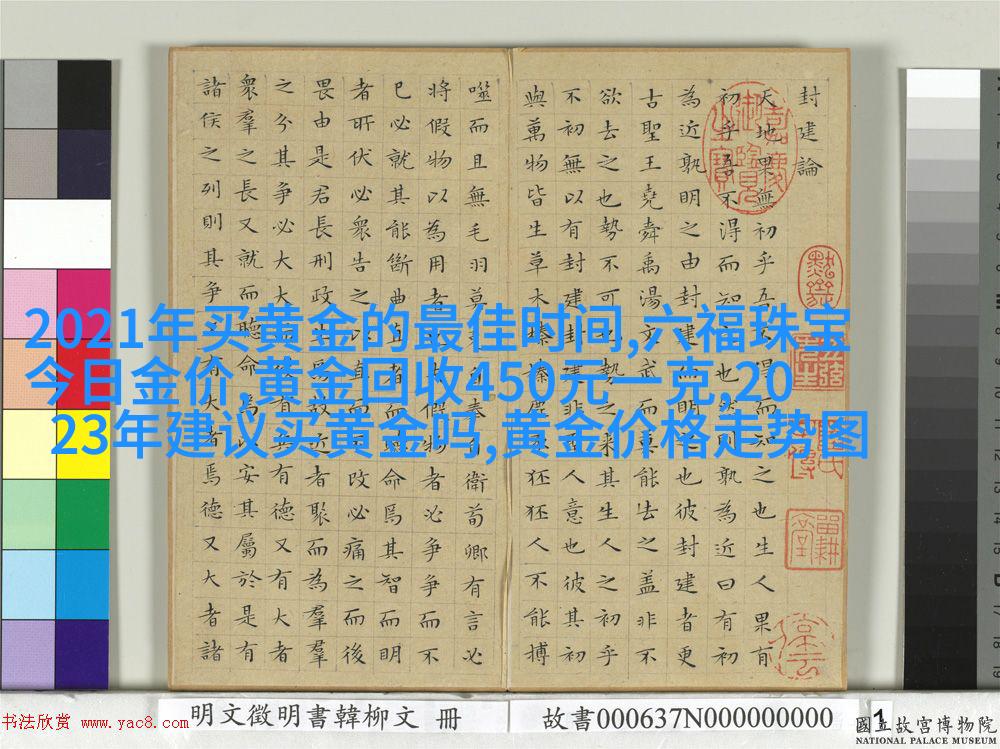 2021年买黄金的最佳时间,六福珠宝
今日金价,黄金回收450元一克,20
23年建议买黄金吗,黄金价格走势图
封建論
天地果無初乎吾不得而知之也生人果有
初乎吾不得而知之也然則孰為近曰有初
為近孰明之由封建而明之也彼封建者更
古聖王堯舜禹湯文武而莫能去之蓋非不
欲去之也勢不可也勢之來其生人之初乎
不初無以有封建封建非聖人意也彼其初
與萬物皆生草木榛榛鹿豕狉狉人不能搏
噬而且無毛羽莫克自奉自衛荀卿有言必
將假物以為用者也夫假物者必爭爭而不
已必就其能斷曲直者而聽命焉其智而明
者所伏必眾告之以直而不改必痛之而後
畏由是君長刑政生焉故近者聚而為羣羣
之分其爭必大大而後有兵有德又有大者
眾羣之長又就而聽命焉以安其屬於是有
諸侯之列則其爭又有大者焉德又大者諸
书法欣赏 www.yac8.com
明文徵明書韓柳文 冊
故書000637N000000000
1
國立故宮博物院
NATIONAL PALACE MUSEUM